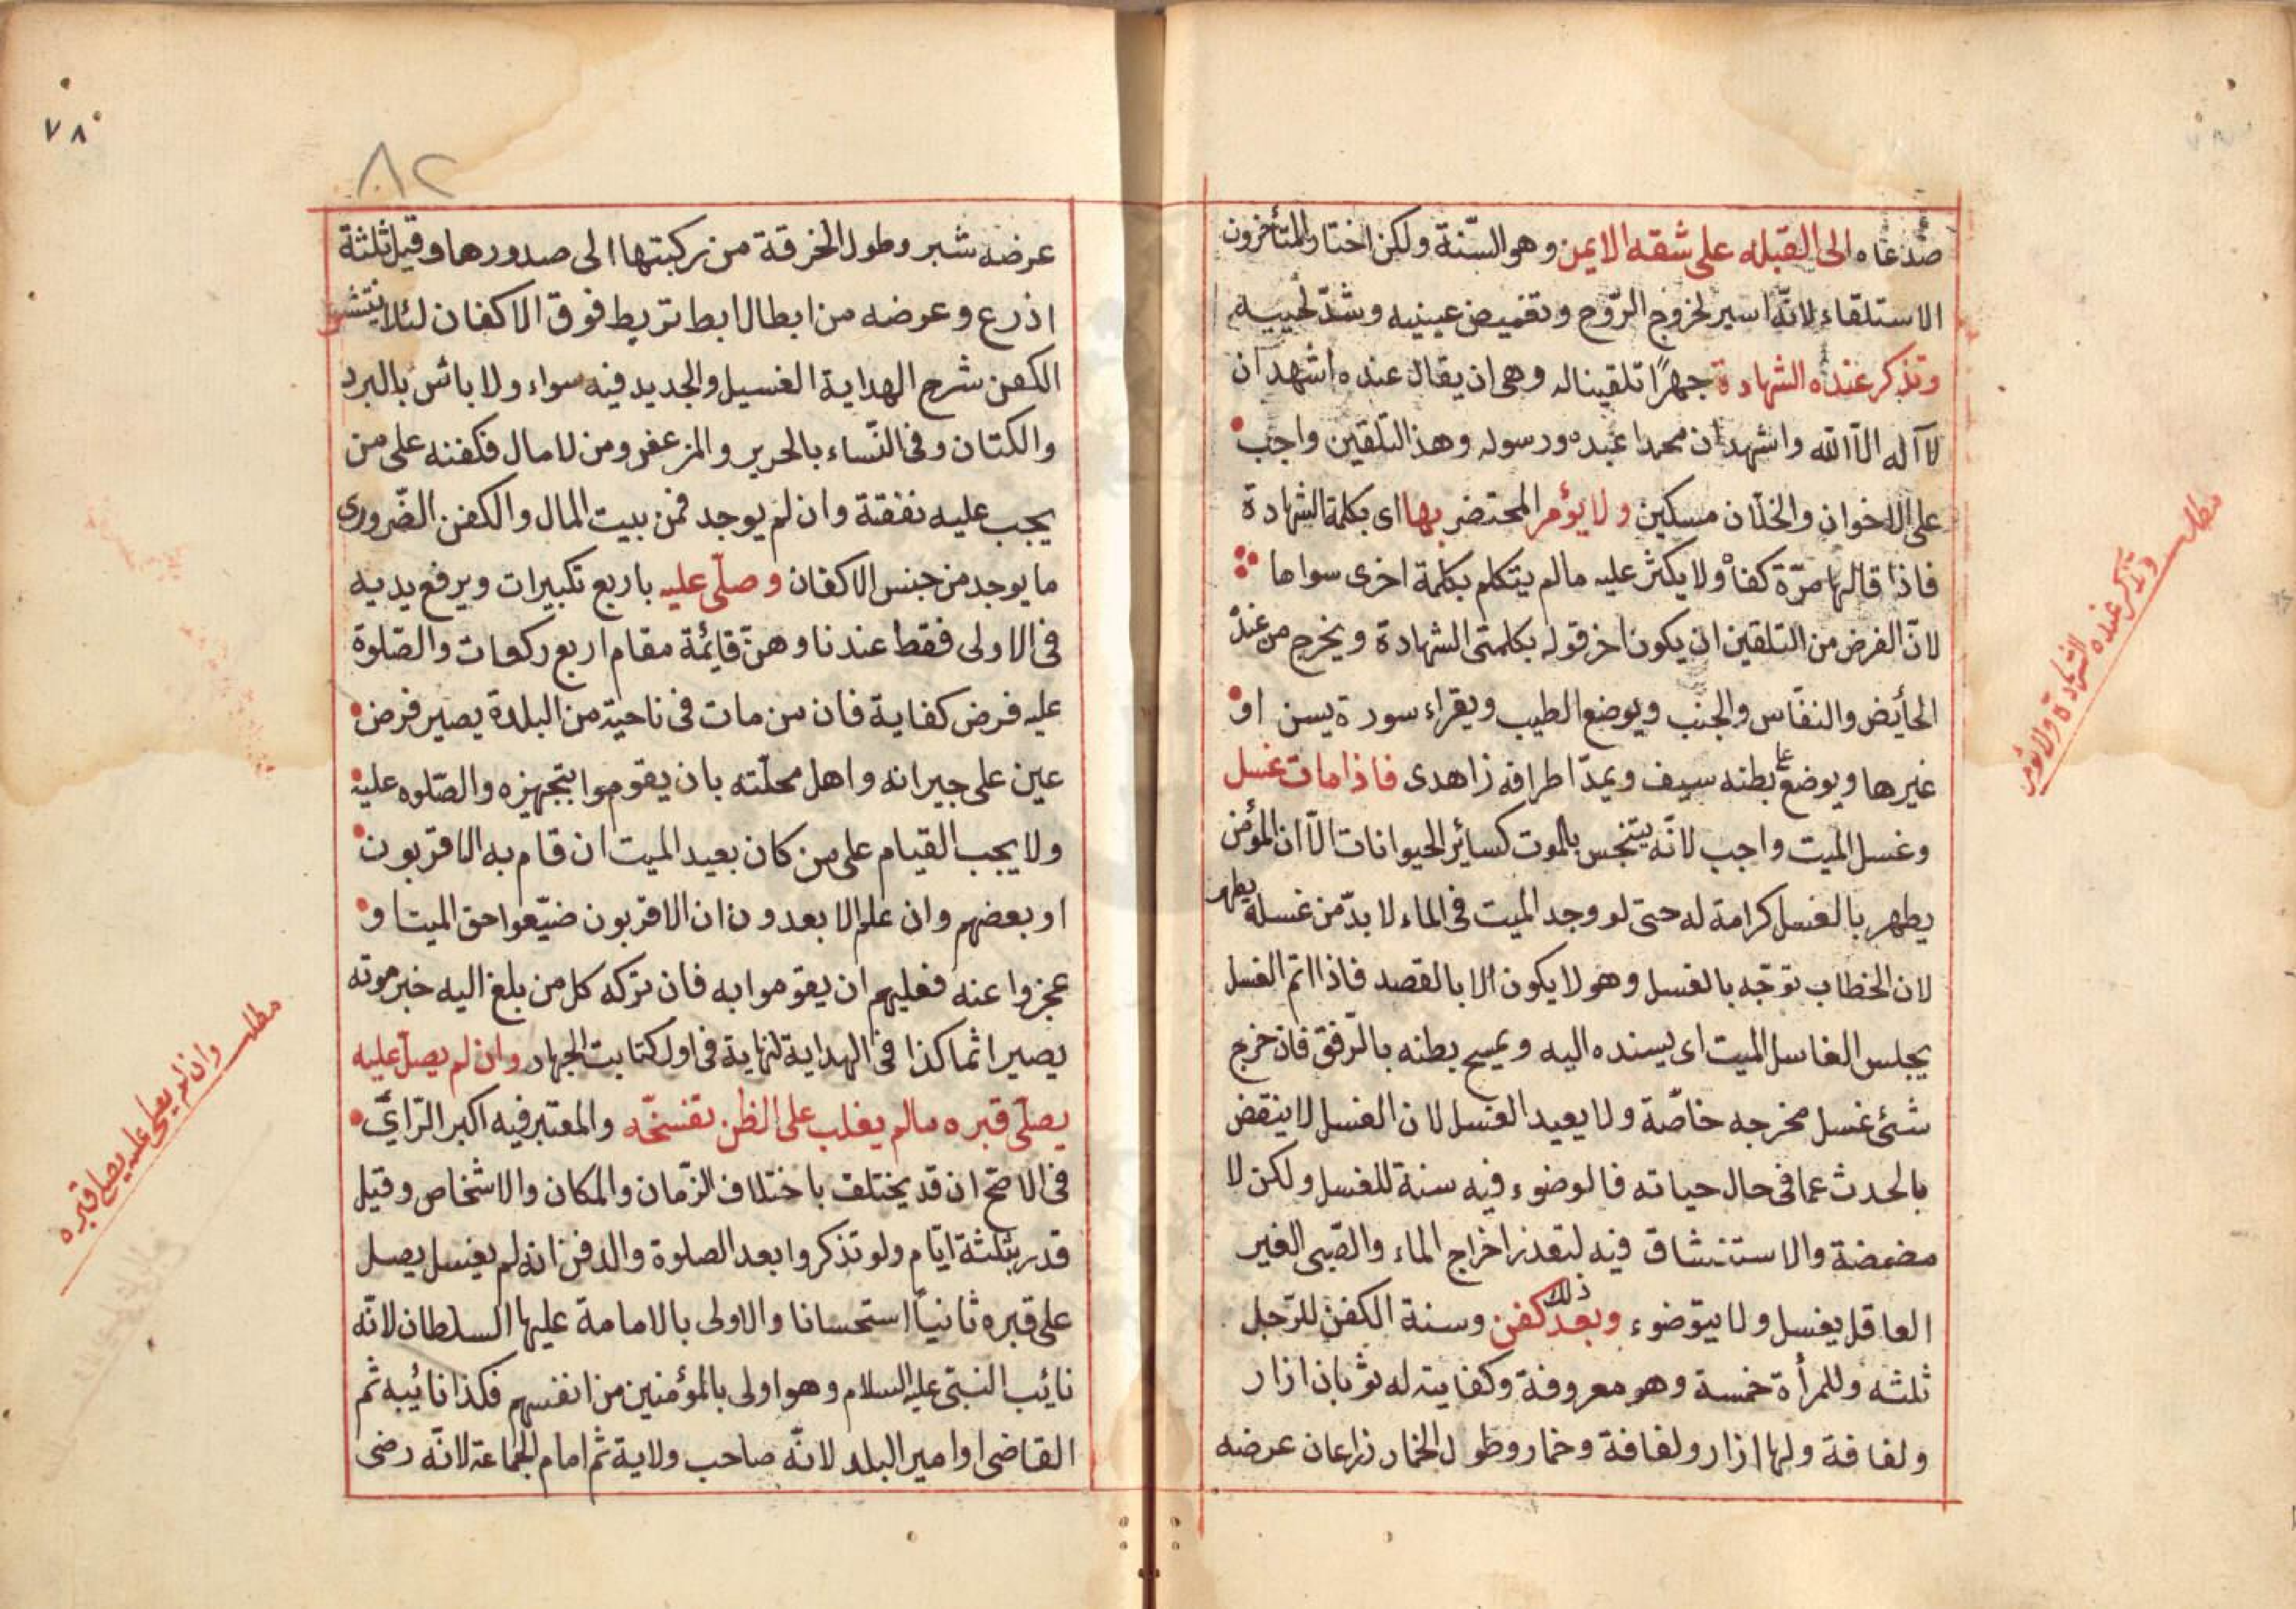 صدغاه الى القبله على شقه الايمن وهو السّنة ولكن اختار المتأخرون
الاستلقاء لانّه اسير لخروج الرّوح وتغميض عينيه وشدّ لحييه
وتذكر عنده الشهادة جهرًا تلقينا له وهى ان يقال عنده اشهد ان
لا آله الّا الله واشهد ان محمدا عبده ورسوله وهذا التلقين واجب
على الاخوان والخلّان مسكين ولا يؤمر المحتضر بها اى بكلمة الشهادة
فاذا قالها مرّة كفاه ولا يكثر عليه مالم يتكلم بكلمة اخرى سواها
لانّ الفرض من التلقين ان يكون اخر قوله بكلمتى الشهادة ويخرج من عند
الحأيض والنفاس والجنب ويوضع الطيب ويقراء سورة يسن او
غيرها ويوضع على بطنه سيف ويمدّ اطرافه زاهدى فاذا مات غسل
وغسل الميت واجب لانّه يتنجس بالموت كسائر الحيوانات الّا ان المؤمن
يطهر بالغسل كرامة له حتى لو وجد الميت فى الماء لا بدّ من غسله يطهر
لان الخطاب توجّه بالغسل وهو لا يكون الا بالقصد فاذا اتم الغسل
يجلس الغاسل الميت اى يسنده اليه ويمسح بطنه بالرّفق فان خرج
شئ غسل مخرجه خاصّة ولا يعيد الغسل لان الغسل لا ينقض
بالحدث عما فى حال حياته فالوضوء فيه سنة للغسل ولكن لا
مضمضة والاستنشاق فيه لتعذر اخراج الماء والصّبى الغير
العاقل يغسل ولا يتوضوء وبعد ذلك كفن وسنة الكفن للرّجل
ثلثه وللمرأة خمسة وهو معروفة وكفايته له ثوبان ازار
ولفافة ولها ازار ولفافة وخمار وطول الخمار ذراعان عرضه
مطلب وتذكر عنده الشهادة ولا يؤمر
٧٨
٨٢
عرضه شبر وطول الخرقة من ركبتها الى صدورها وقيل ثلثة
اذرع وعرضه من ابط الابط تربط فوق الاكفان لئلا ينتشر
الكفن شرح الهداية الغسيل والجديد فيه سواء ولا باش بالبرد
والكتان وفى النّساء بالحرير والمزعفر ومن لا مال فكفنه على من
يجب عليه نفقتة وان لم يوجد فمن بيت المال والكفن الضّرورى
ما يوجد من جنس الاكفان وصلّى عليه باربع تكبيرات ويرفع يديه
فى الاولى فقط عندنا وهنّ قائمة مقام اربع ركعات والصّلوة
عليه فرض كفاية فان من مات فى ناحية من البلدة يصير فرض
عين على جيرانه واهل محلّته بان يقوموا بتجهيزه والصّلوه عليه
ولا يجب القيام على من كان بعيد الميت ان قام به الاقربون
او بعضهم وان علم الابعدون ان الاقربون ضيّعوا حق الميت او
عجزوا عنه فعليهم ان يقوموا به فان تركه كل من بلغ اليه خبر موته
يصير اثما كذا فى الهداية لنهاية فى اول كتابت الجهاد وان لم يصلّ عليه
يصلّى قبره مالم يغلب على الظن تفسخّه والمعتبر فيه اكبر الرّأي
فى الاصّح ان قد يختلف باختلاف الزّمان والمكان والاشخاص وقيل
قدر بثلثة ايّام ولو تذكروا بعد الصلوة والدفن انه لم يغسل يصل
على قبره ثانيًا استحسانا والاولى بالامامة عليها السلطان لانّه
نائب النبى عليه السلام وهو اولى بالمؤمنين من انفسهم فكذا نائبه ثم
القاضى او امير البلد لانّه صاحب ولاية ثم امام الجماعة لانّه رضى
مطلب وان لم يصلى عليه يصلى قبره